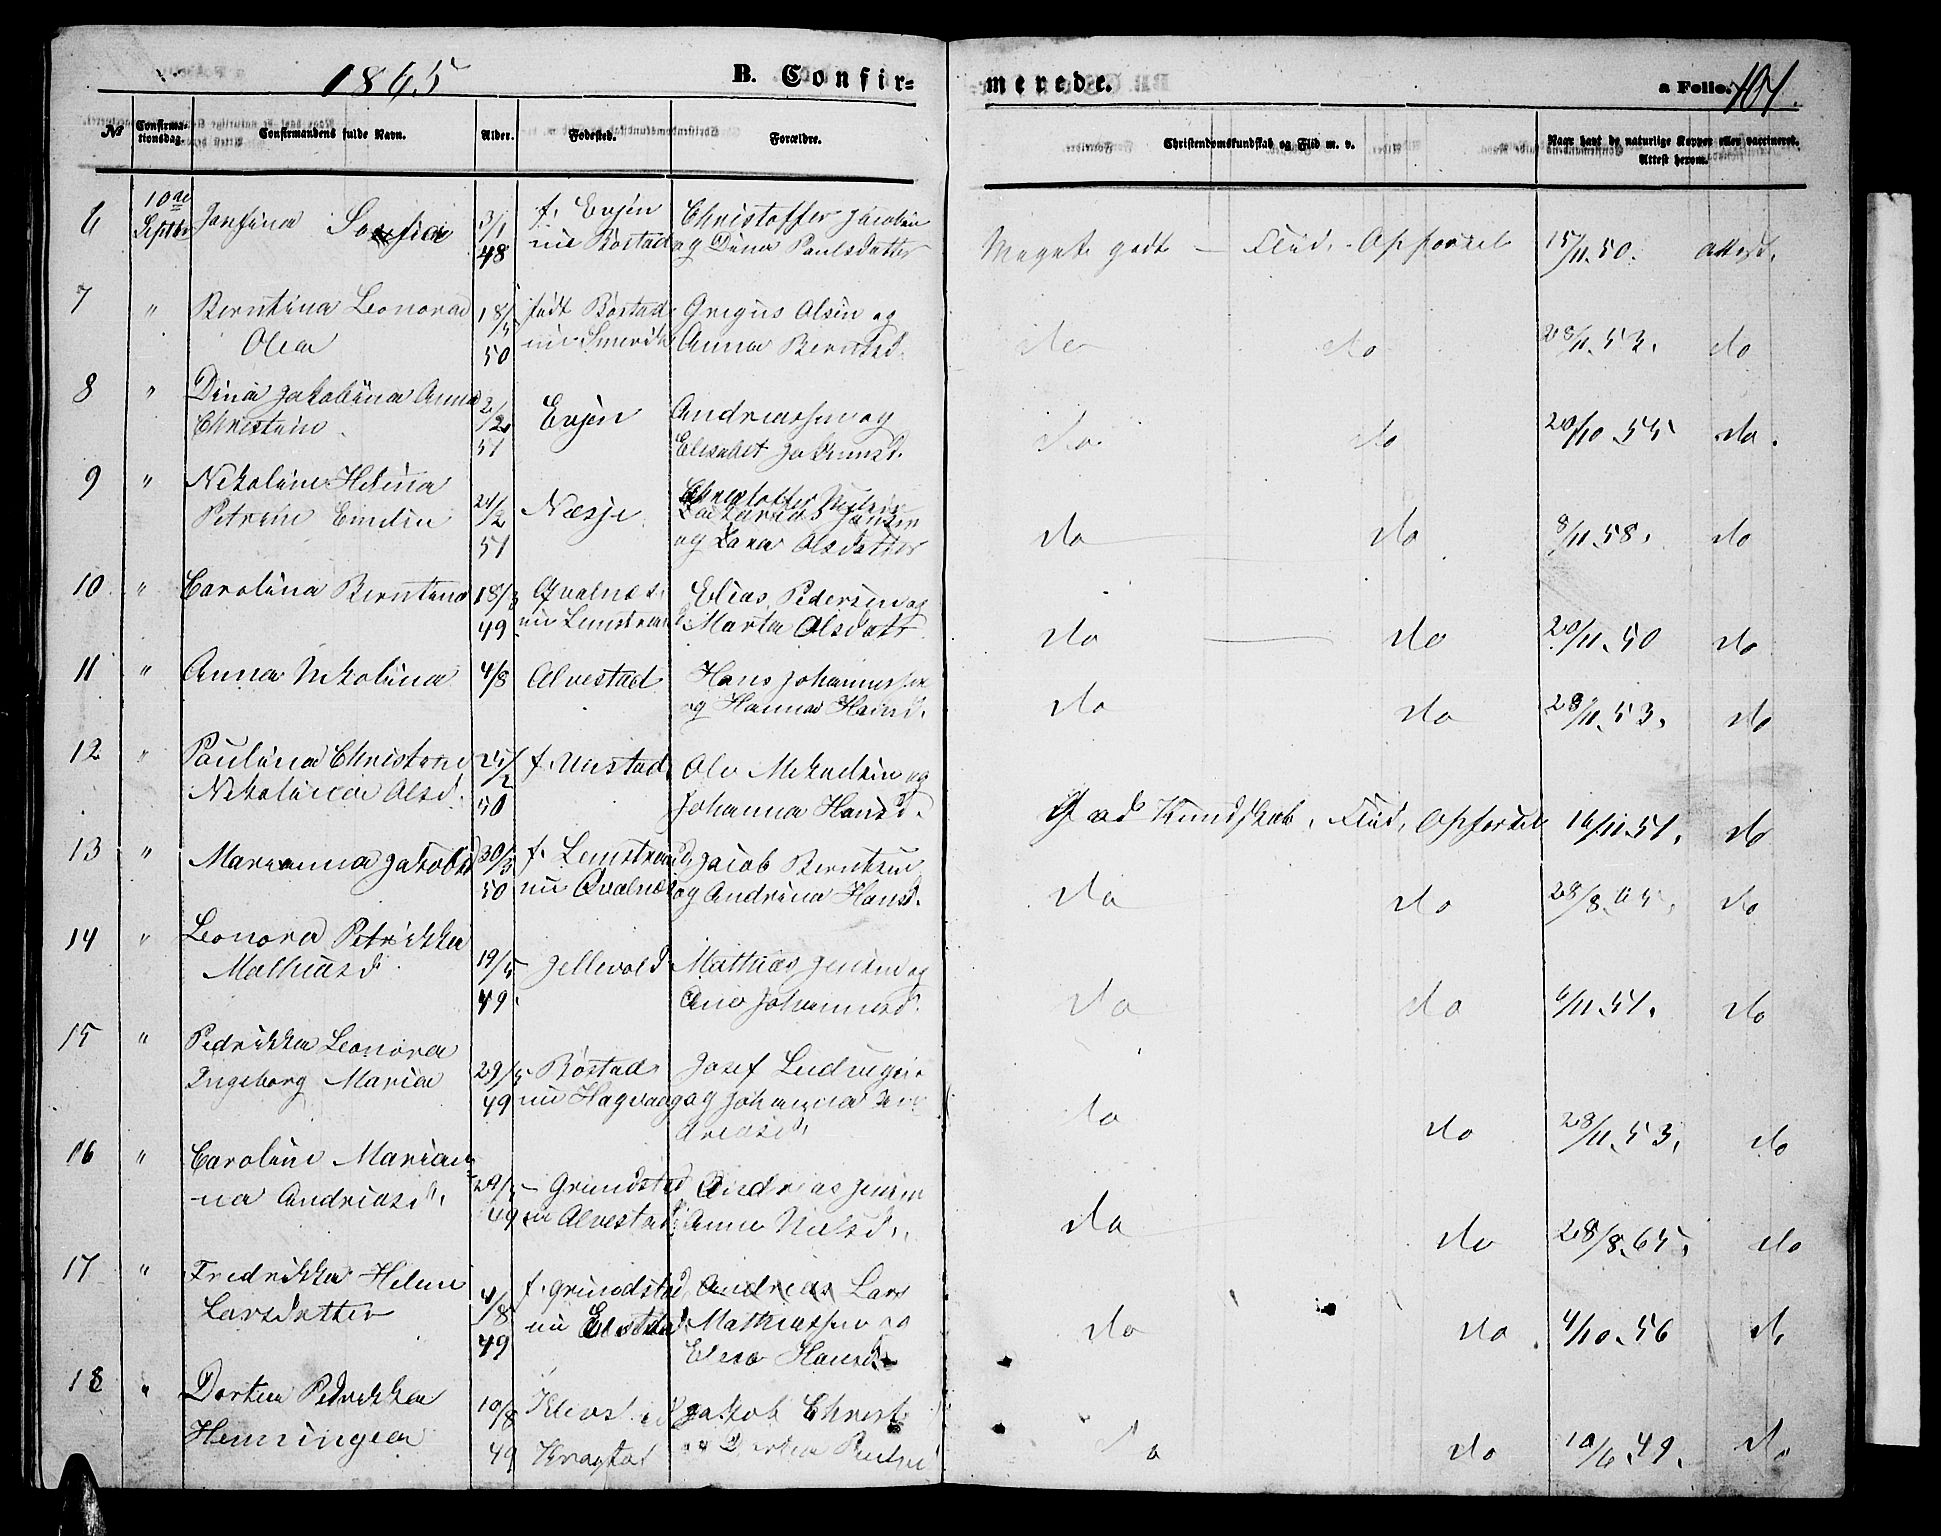 1865
B. Confir-
merede.
a Folio. 101.
No
Confirma-
tionsdag.
Confirmandens fulde Navn.
Alder.
Fødested.
Forældre.
Christendomskundskab og Flid m. v.
Naar havt de naturlige Kopper eller vaccineret.
Attest herom.
6
10de
Septbr
Josefina Sofia
3/1
48
f. Evjen
nu Bøstad
Christoffer Jacobsen
og Dina Paulsdatter
Meget godt - Flid - Opførsel
15/11.50. Attest.
7
"
Berntina Leonora
Olea
18/5
50
født Bøstad
nu
Gregus Olsen og
Anna Berntsd.
do do
28/11.53. do
8
"
Dina Jakobina Anna
Christin
2/2
51
Evjen
Andreassen og
Elisabet Jakobsd.
do do
20/10.55 do.
9
"
Nikoline Helena
Petrine Emelie
24/2
51
Næsje
Christoffer Nilsen
Zakarias Jensen
og Lana Olsdatter
do do
8/11.58. do
10
"
Carolina Berntina
18/3
49
Qvalnæs
nu Lenstrand
Elias Pedersen og
Marta Olsdatr
do do
20/11.50 do
11
"
Anna Nikolina
4/8
Alvestad
Hans Johannessen
og Hanna Hansd.
do do
28/11.53. do
12
"
Paulina Christine
Nikolina Olsd.
25/2
50
f. Unstad
Ole Mikelsen og
Johanna Hansd.
God Kundskab, Flid, Opførsel
16/11.51. do
13
"
Marianna Jakobsd
30/3
50
f. Lenstrand
nu Qvalnæs
Jacob Berntsen
og Andrina Hansd.
do do
28/8.65. do
14
"
Leonora Petrikka
Mathiasd.
19/5
49.
Jellevold
Mathias Jensen og
Ane Johannesd.
do do
6/11.51. do
15
"
Pedrikka Leonora
Ingeborg Maria
29/5
49
Bøstad
nu Hagvaag
Josef Ludvigsen
og Johanna An-
dreasd.
do do
28/11.53. do
16
"
Caroline Marian-
na Andreasd.
29/5
49
Grundstad
nu Alvestad
Andreas Jensen
Anne Nielsd.
do do
28/8.65. do
17
"
Fredrikka Helene
Larsdatter
4/8
49
f. Grundstad
nu
Andreas Lars
Mathiassen og
Elesa Hansd.
do do
4/10.56 do
18
"
Dortea Pedrikka
Henningea
10/8
49
Jakob Christ.
og Dortea
do do
10/6.49. do